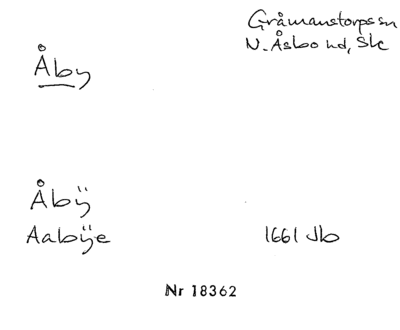 Åby
Gråmanstorps sn
N. Åsbo hd, Sk
Åbÿ
Aabÿe 1661 Jb
Nr 18362